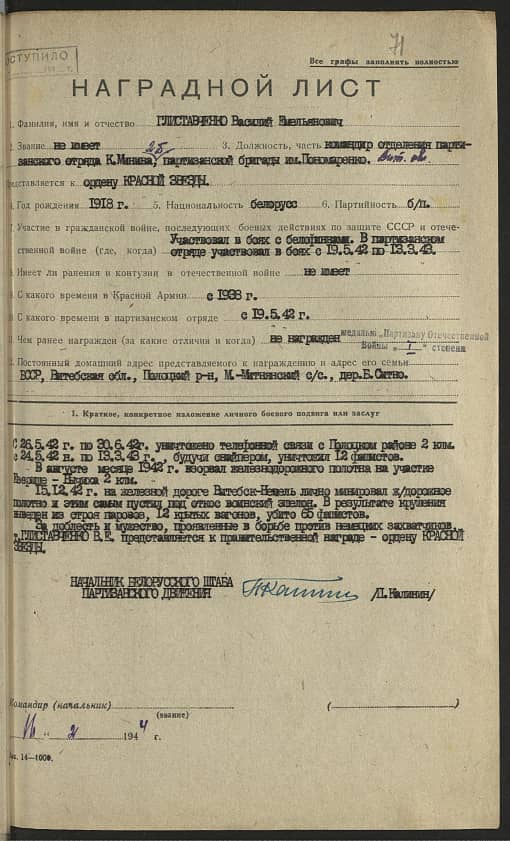 71
ПОСТУПИЛО
Все графы заполнять полностью
НАГРАДНОЙ ЛИСТ
1. Фамилия, имя и отчество ГЛИСТАВЧЕНКО Василий Емельянович
2. Звание не имеет 3. Должность, часть командир отделения парти-
занского отряда К.Минина, партизанской бригады им.Пономаренко.
представляется к ордену КРАСНОЙ ЗВЕЗДЫ.
4. Год рождения 1918 г. 5. Национальность белорусс 6. Партийность б/п.
7. Участие в гражданской войне, последующих боевых действиях по защите СССР и отече-
ственной войне (где, когда) Участвовал в боях с белофиннами. В партизанском
отряде участвовал в боях с 19.5.42 по 13.3.43.
8. Имеет ли ранения и контузии в отечественной войне не имеет
9. С какого времени в Красной Армии с 1938 г.
10. С какого времени в партизанском отряде с 19.5.42 г.
11. Чем ранее награжден (за какие отличия и когда) не награжден медалью „Партизану Отечественной
Войны „I" степени
12. Постоянный домашний адрес представляемого к награждению и адрес его семьи
БССР, Витебская обл., Полоцкий р-н, М.-Митнянский с/с., дер.Б.Ситно.
1. Краткое, конкретное изложение личного боевого подвига или заслуг
С 26.5.42 г. по 30.6.42г. уничтожено телефонной связи с Полоцком районе 2 клм.
С 24.5.42 н. по 13.3.43 г. будучи снайпером, уничтожил 12 фашистов.
В августе месяце 1942 г. взорвал железнодорожного полотна на участке
2 клм.
15.12.42 г. на железной дороге Витебск-Невель лично минировал ж/дорожное
полотно и этим самым пустил под откос воинский эшелон. В результате крушения
выведен из строя паровоз, 12 крытых вагонов, убито 65 фашистов.
За доблесть и мужество, проявленные в борьбе против немецких захватчиков
т.ГЛИСТАВЧЕНКО В.Е. представляется к правительственной награде - ордену КРАСНОЙ
ЗВЕЗДЫ.
НАЧАЛЬНИК БЕЛОРУССКОГО ШТАБА
ПАРТИЗАНСКОГО ДВИЖЕНИЯ /П.Калинин/
Командир (начальник) ( )
(звание)
194 4 г.
Зак. 14—1000.